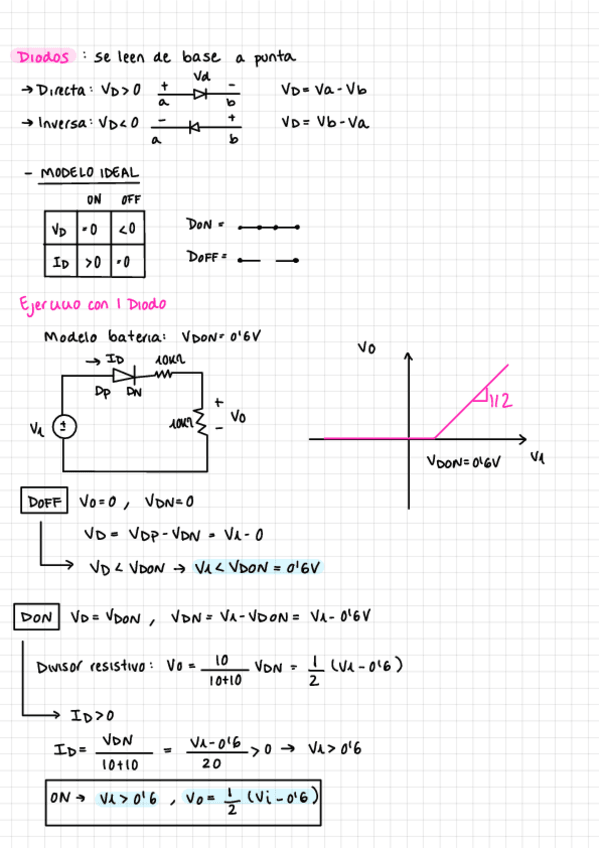 Diodos : se leen de base a punta
→ Directa: VD>0 + Vd - a b VD = Va - Vb
→ Inversa: VD<0 - + a b VD = Vb - Va
- MODELO IDEAL
ON OFF
VD =0 <0 DON =
ID >0 =0 DOFF =
Ejercicio con 1 Diodo
Modelo bateria: VDON = 0'6V
→ ID 10KΩ
DP DN
Vi ± 10KΩ + - Vo
Vo
1/2
VDON = 0'6V Vi
DOFF Vo = 0 , VDN = 0
VD = VDP - VDN = Vi - 0
VD < VDON → Vi < VDON = 0'6V
DON VD = VDON , VDN = Vi - VDON = Vi - 0'6V
Divisor resistivo: Vo = 10/10+10 VDN = 1/2 (Vi - 0'6)
→ ID > 0
ID = VDN/10+10 = Vi - 0'6/20 > 0 → Vi > 0'6
ON → Vi > 0'6 , Vo = 1/2 (Vi - 0'6)